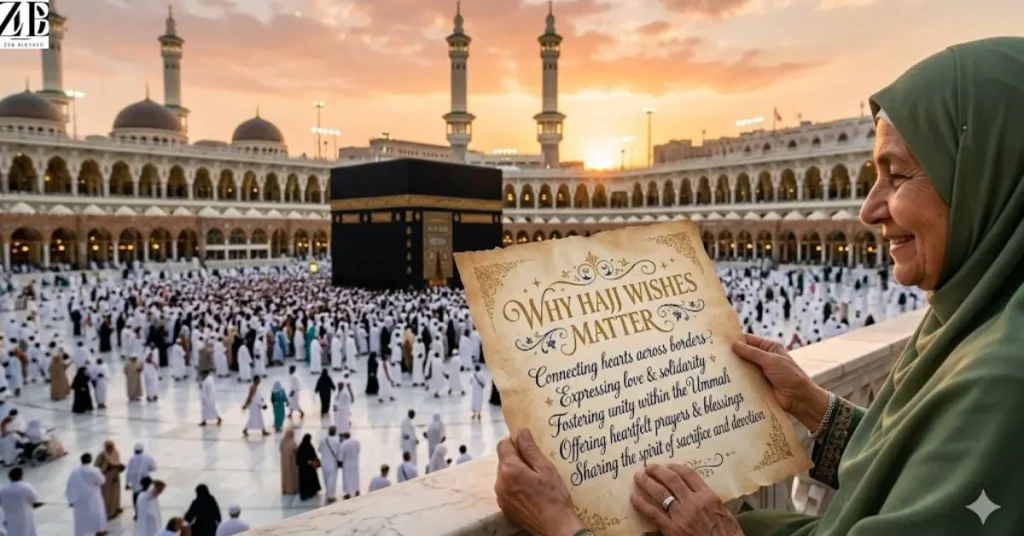 ZB
ZEN BLESSED
WHY HAJJ WISHES
MATTER
Connecting hearts across borders,
Expressing love & solidarity
Fostering unity within the Ummah
Offering heartfelt prayers & blessings
Sharing the spirit of sacrifice and devotion